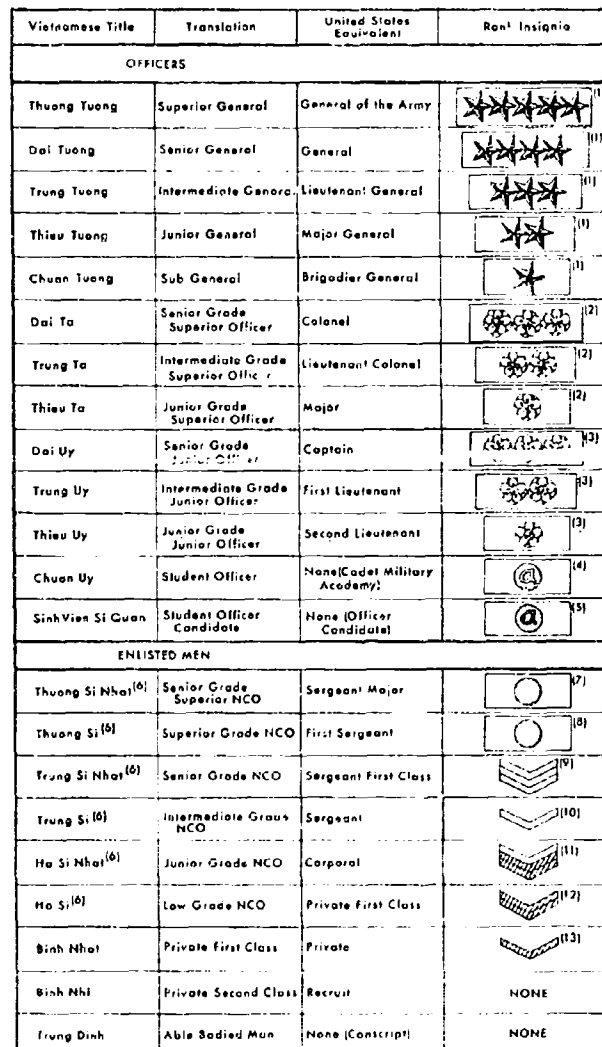 Vietnamese Title Translation United States Equivalent Rank Insignia
OFFICERS
Thuong Tuong Superior General General of the Army (1
Dai Tuong Senior General General (1)
Trung Tuong Intermediate General Lieutenant General (1)
Thieu Tuong Junior General Major General (1)
Chuan Tuong Sub General Brigadier General (1)
Dai Ta Senior Grade Superior Officer Colonel (2)
Trung Ta Intermediate Grade Superior Officer Lieutenant Colonel (2)
Thieu Ta Junior Grade Superior Officer Major (2)
Dai Uy Senior Grade Junior Officer Captain (3)
Trung Uy Intermediate Grade Junior Officer First Lieutenant (3)
Thieu Uy Junior Grade Junior Officer Second Lieutenant (3)
Chuan Uy Student Officer None(Cadet Military Academy) a (4)
SinhVien Si Quan Student Officer Candidate None (Officer Candidate) a (5)
ENLISTED MEN
Thuong Si Nhat(6) Senior Grade Superior NCO Sergeant Major (7)
Thuong Si(6) Superior Grade NCO First Sergeant (8)
Trung Si Nhat(6) Senior Grade NCO Sergeant First Class (9)
Trung Si(6) Intermediate Grade NCO Sergeant (10)
Ha Si Nhat(6) Junior Grade NCO Corporal (11)
Ha Si(6) Low Grade NCO Private First Class (12)
Binh Nhat Private First Class Private (13)
Binh Nhi Private Second Class Recruit NONE
Trung Dinh Able Bodied Man None (Conscript) NONE